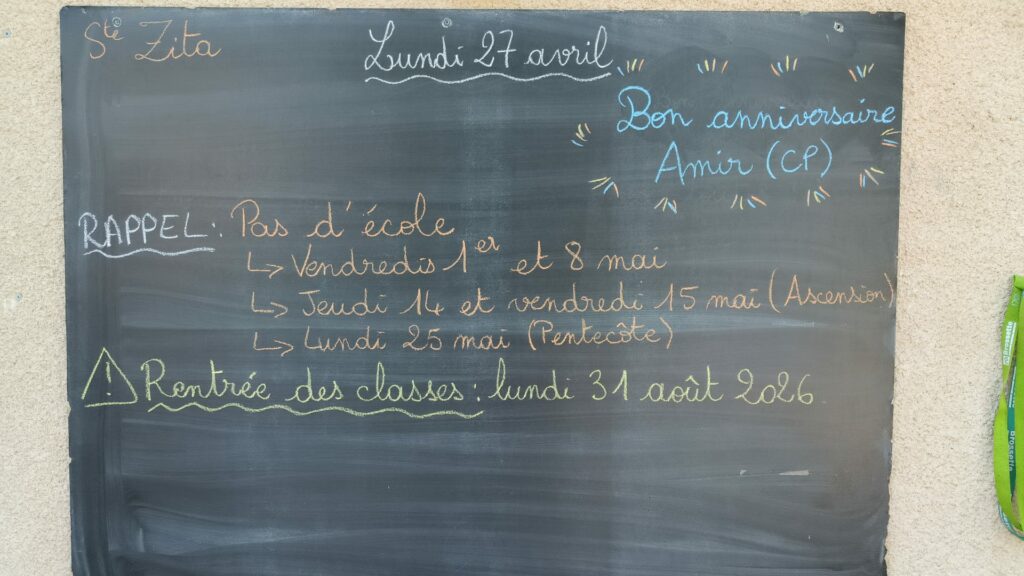 Sté Zita
Lundi 27 avril
Bon anniversaire
Amir (CP)
RAPPEL : Pas d'école
↳ Vendredis 1er et 8 mai
↳ Jeudi 14 et vendredi 15 mai (Ascension)
↳ Lundi 25 mai (Pentecôte)
⚠ Rentrée des classes : lundi 31 août 2026.